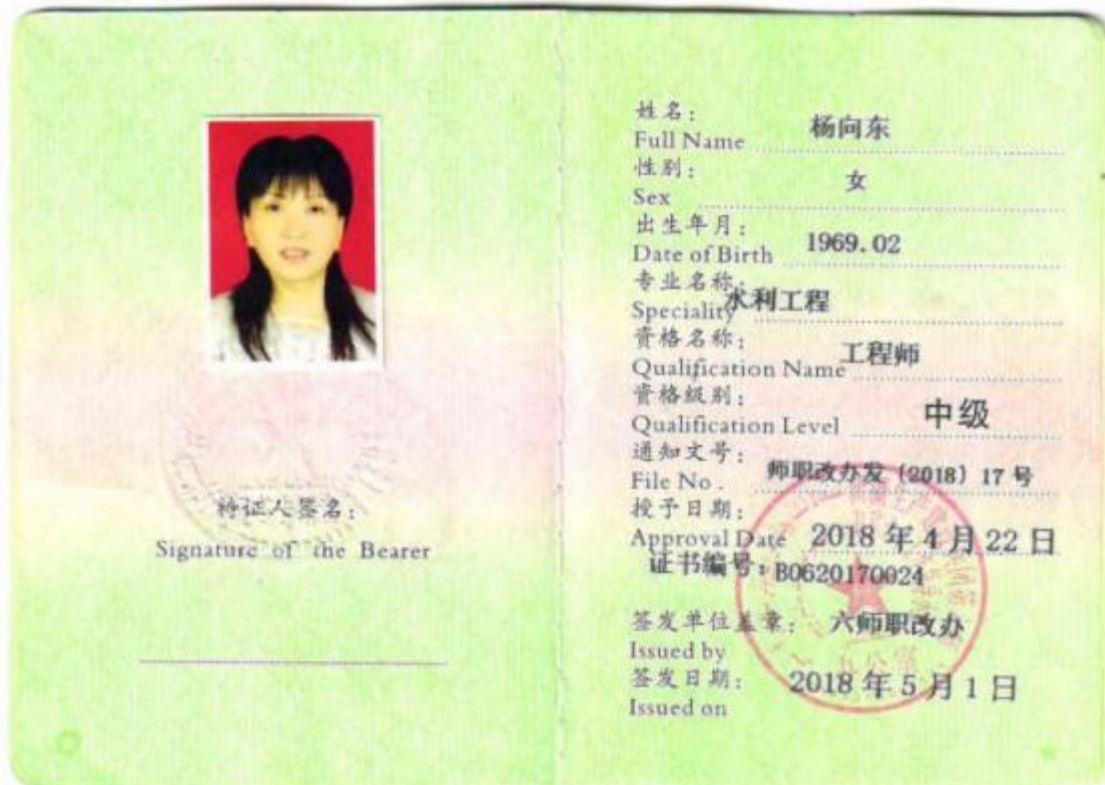 持证人签名：
Signature of the Bearer
姓名：
Full Name 杨向东
性别：
Sex 女
出生年月：
Date of Birth 1969.02
专业名称：
Speciality 水利工程
资格名称：
Qualification Name 工程师
资格级别：
Qualification Level 中级
通知文号：
File No. 师职改办发〔2018〕17 号
授予日期：
Approval Date 2018 年 4 月 22 日
证书编号：B0620170024
签发单位盖章： 六师职改办
Issued by
签发日期： 2018 年 5 月 1 日
Issued on